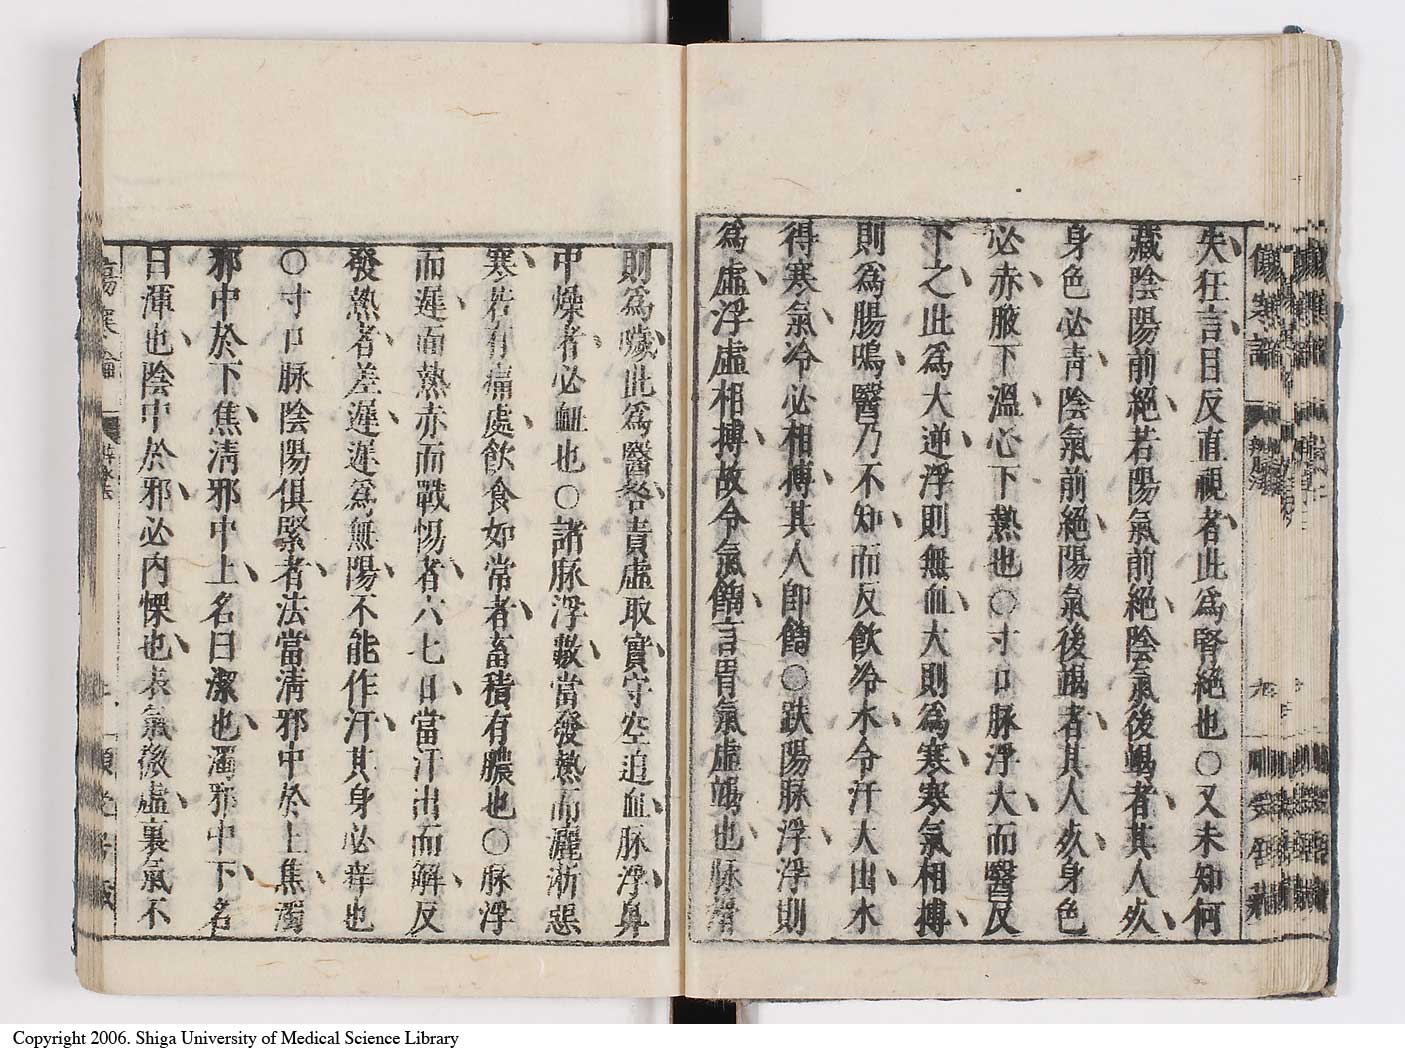 失狂言目反直視者此爲腎絕也○又未知何
藏陰陽前絕若陽氣前絕陰氣後竭者其人死
身色必靑陰氣前絕陽氣後竭者其人死身色
必赤腋下溫心下熱也○寸口脉浮大而醫反
下之此爲大逆浮則無血大則爲寒寒氣相搏
則爲腸鳴醫乃不知而反飮冷水令汗大出水
得寒氣冷必相搏其人卽䭇○趺陽脉浮浮則
爲虛浮虛相搏故令氣䭇言胃氣虛竭也脉滑
則爲噦此爲醫咎責虛取實守空迫血脉浮鼻
中燥者必衄也○諸脉浮數當發熱而灑淅惡
寒若有痛處飮食如常者畜積有膿也○脉浮
而遲面熱赤而戰惕者六七日當汗出而解反
發熱者差遲遲爲無陽不能作汗其身必痒也
○寸口脉陰陽俱緊者法當淸邪中於上焦濁
邪中於下焦淸邪中上名曰潔也濁邪中下名
曰渾也陰中於邪必內慄也表氣微虛裏氣不
傷寒論
Copyright 2006. Shiga University of Medical Science Library